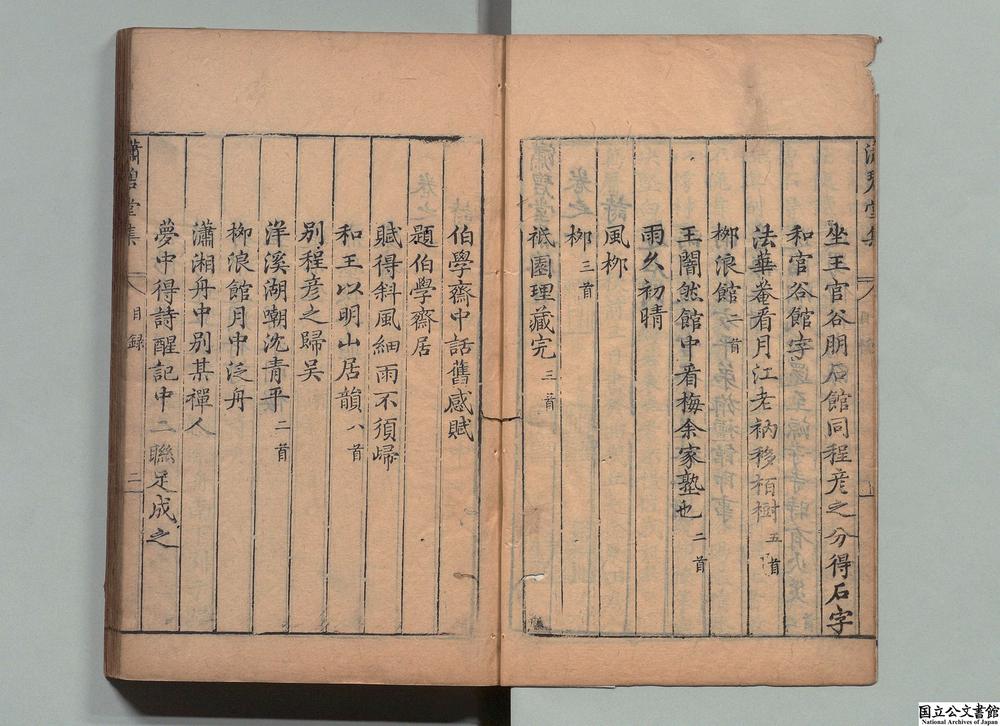 坐王官谷朋石館同程彦之分得石字
和官谷館字
法華菴看月江老衲移栢樹五首
柳浪館二首
王闇然館中看梅余家塾也二首
雨久初晴
風柳
柳三首
祇園理藏完三首
伯學齋中話舊感賦
題伯學齋居
賦得斜風細雨不須歸
和王以明山居韻八首
別程彦之歸吴
洋溪湖嘲沈青平二首
柳浪館月中泛舟
瀟湘舟中別某禪人
夢中得詩醒記中二聯足成之
瀟碧堂集 目録 二
国立公文書館
National Archives of Japan